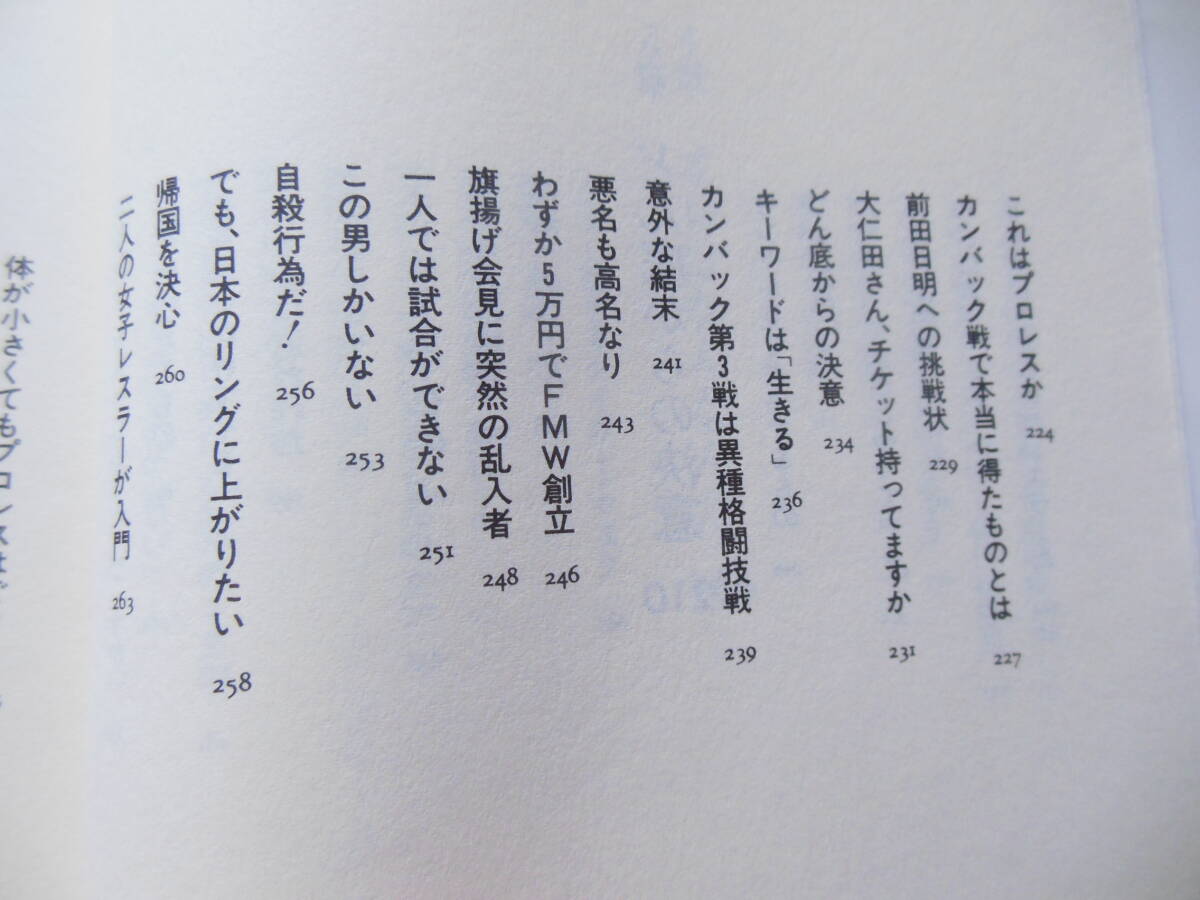 これはプロレスか 224
カンバック戦で本当に得たものとは 227
前田日明への挑戦状 229
大仁田さん、チケット持ってますか 231
どん底からの決意 234
キーワードは「生きる」 236
カンバック第3戦は異種格闘技戦 239
意外な結末 241
悪名も高名なり 243
わずか5万円でFMW創立 246
旗揚げ会見に突然の乱入者 248
一人では試合ができない 251
この男しかいない 253
自殺行為だ! 256
でも、日本のリングに上がりたい 258
帰国を決心 260
二人の女子レスラーが入門 263
体が小さくてもプロレスは